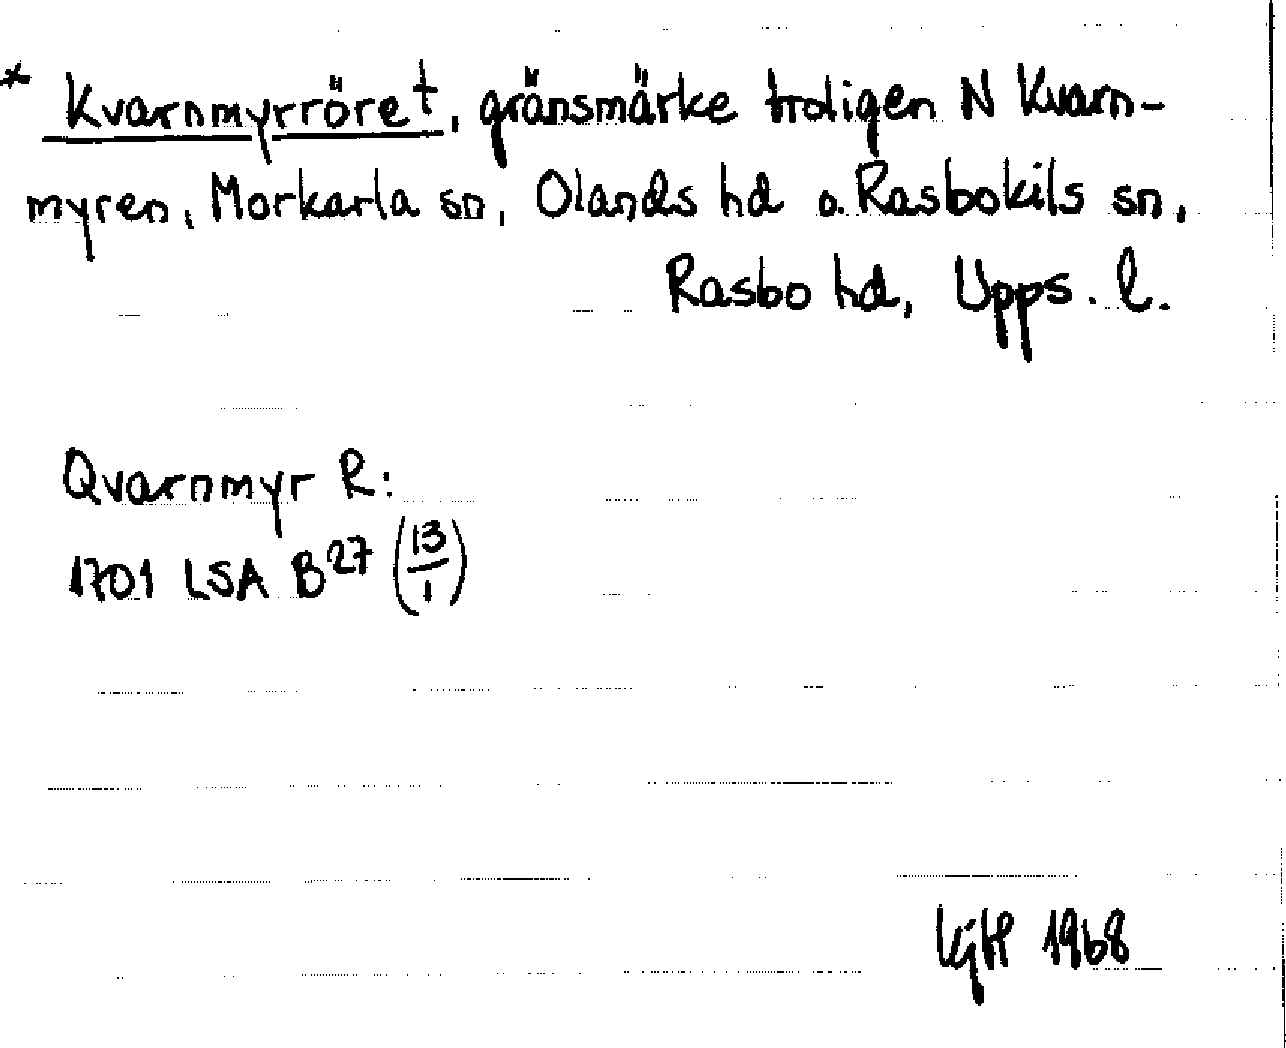 * Kvarnmyrröret, gränsmärke troligen N Kvarn-
myren, Morkarla sn, Olands hd o. Rasbokils sn,
Rasbo hd, Upps. l.
Qvarnmyr R:
1701 LSA B27 (13/1)
1968